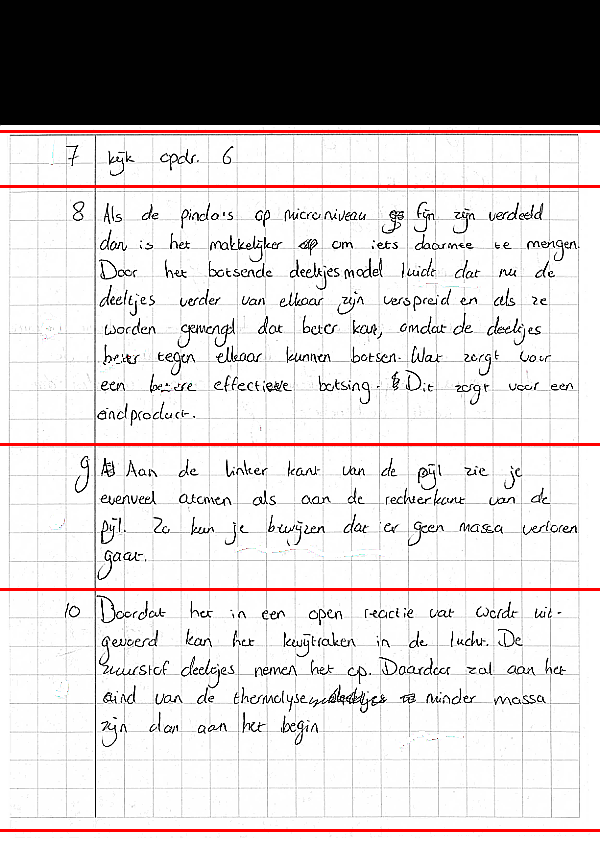 7 kijk opdr. 6
8 Als de pinda's op microniveau fijn zijn verdeeld
dan is het makkelijker om iets daarmee te mengen.
Door het botsende deeltjesmodel luidt dat nu de
deeltjes verder van elkaar zijn verspreid en als ze
worden gemengd dat beter kan, omdat de deeltjes
beter tegen elkaar kunnen botsen. Wat zorgt voor
een betere effectieve botsing. Dit zorgt voor een
eindproduct.
9 Aan de linker kant van de pijl zie je
evenveel atomen als aan de rechterkant van de
pijl. Zo kun je bewijzen dat er geen massa verloren
gaat.
10 Doordat het in een open reactie vat wordt uit-
gevoerd kan het kwijtraken in de lucht. De
zuurstof deeltjes nemen het op. Daardoor zal aan het
eind van de thermolyse minder massa
zijn dan aan het begin